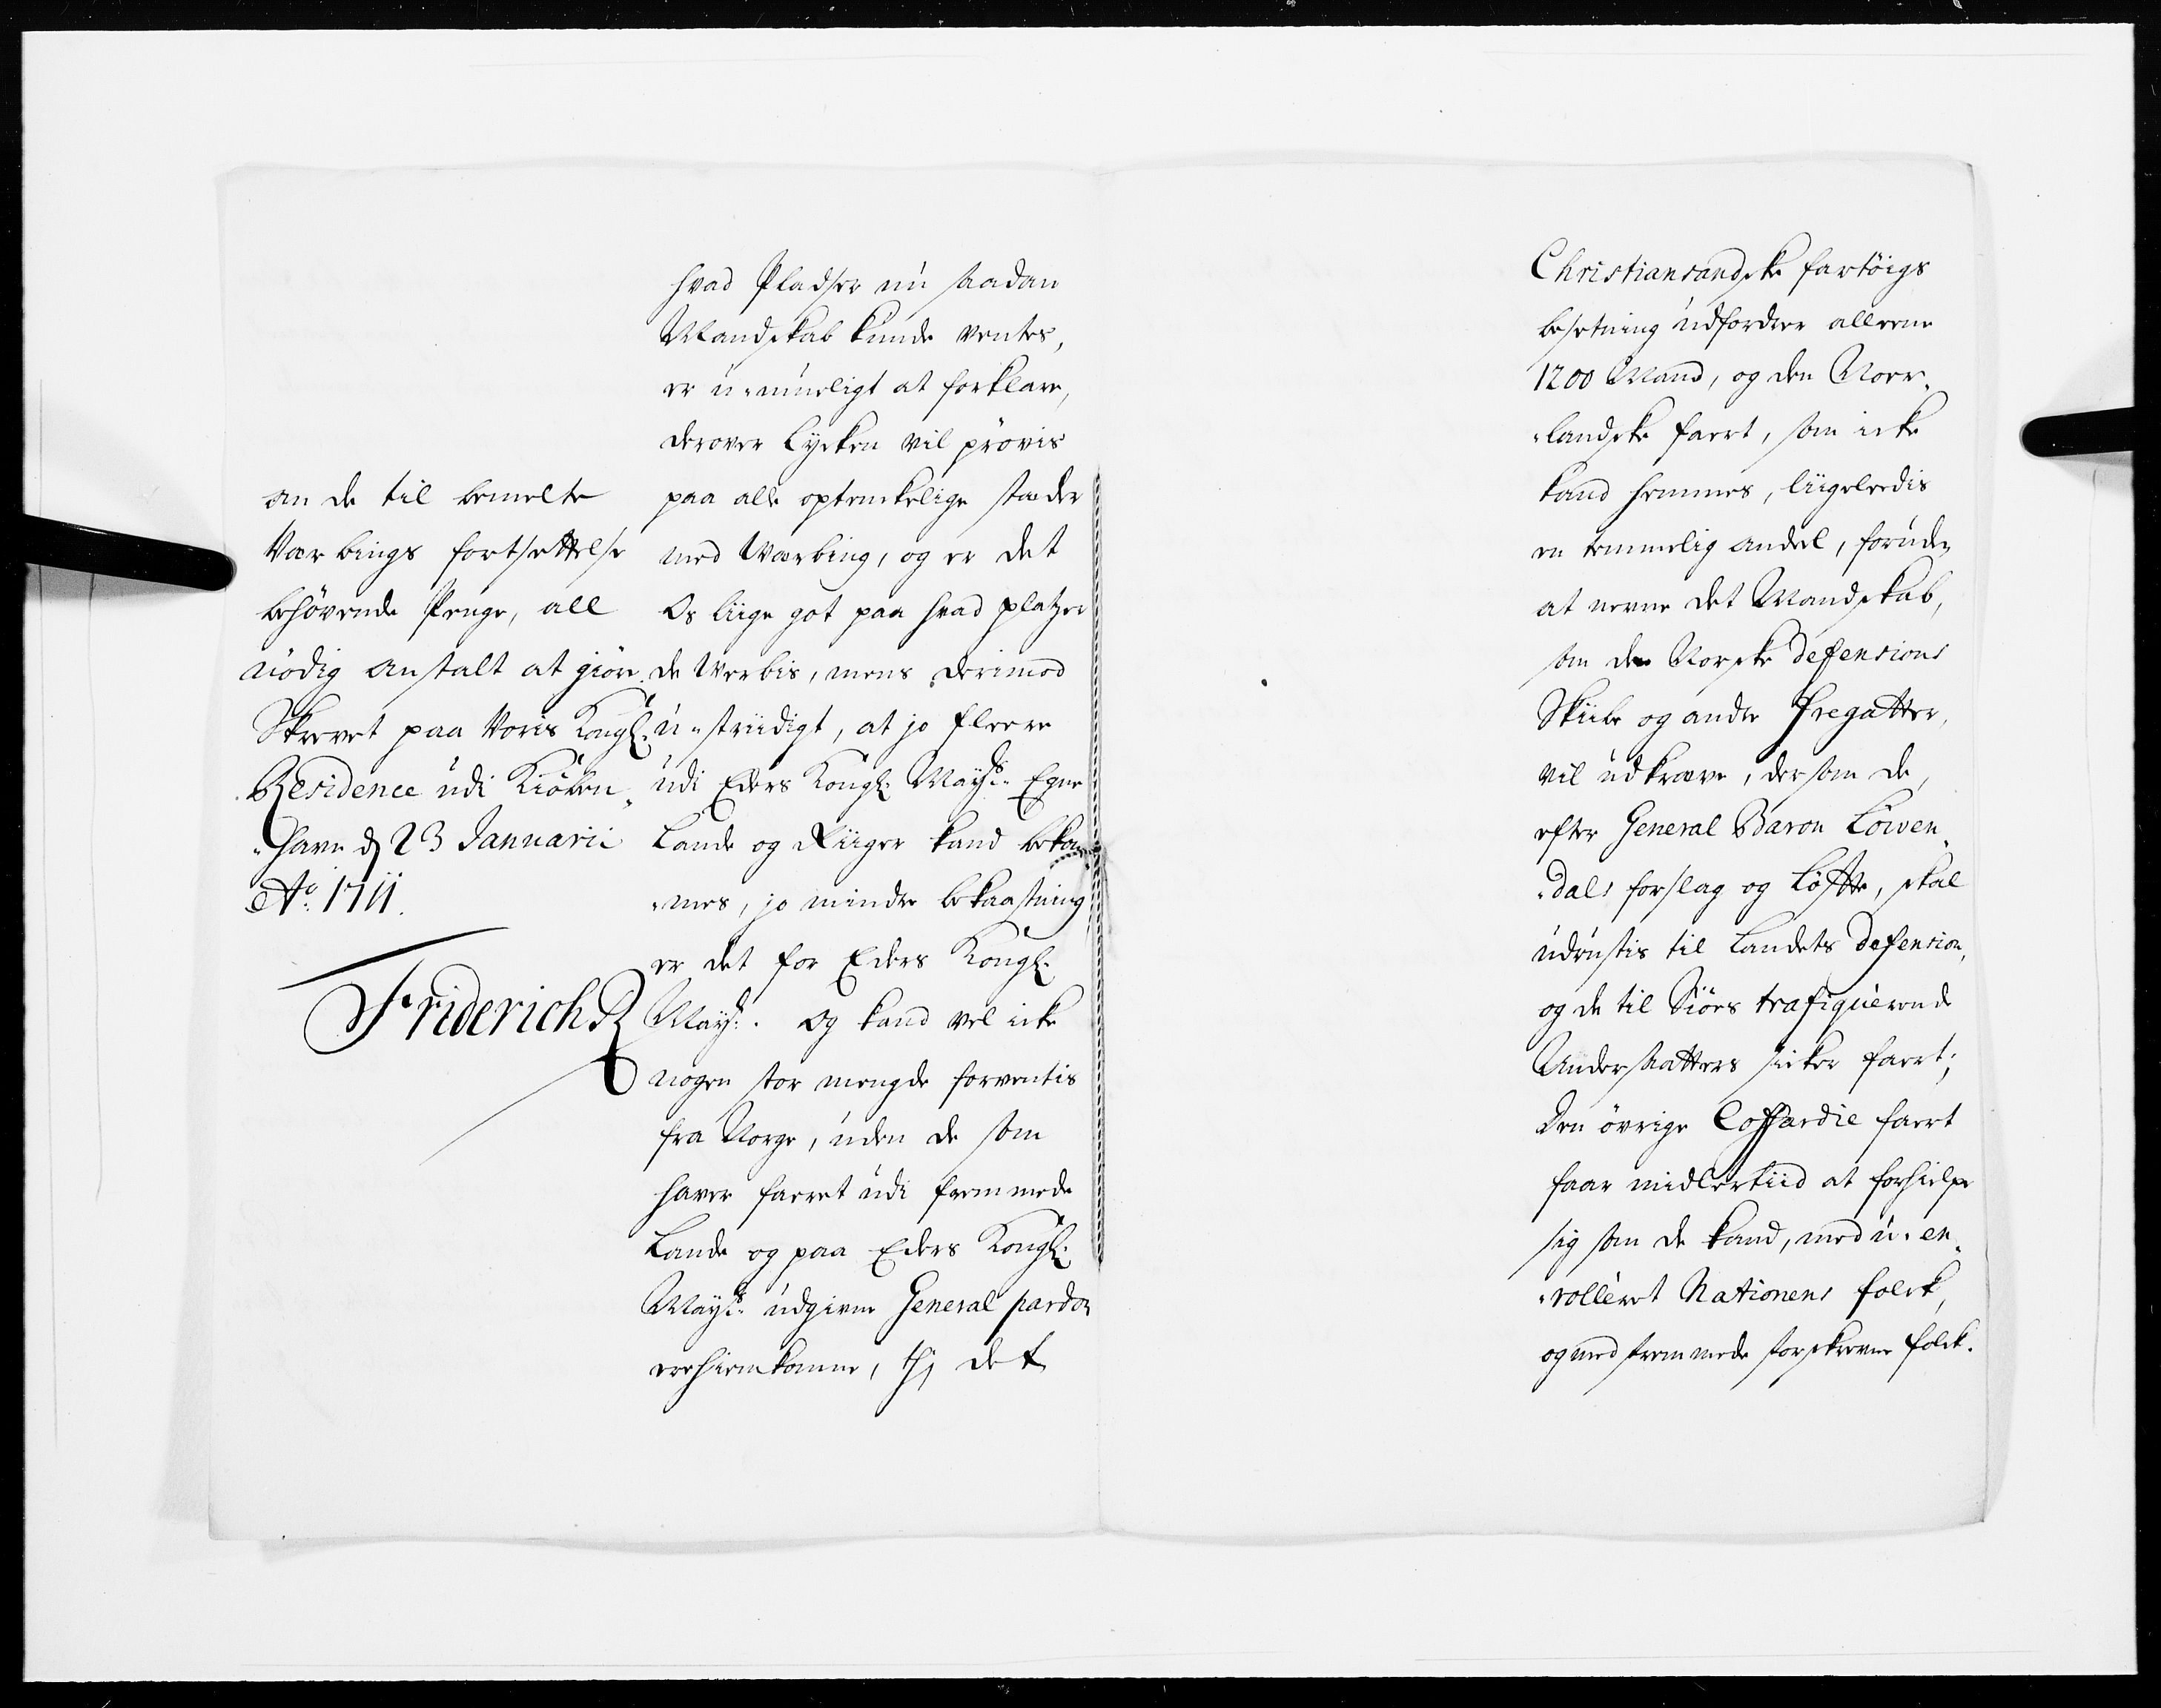 an de til bemelte
Værbings fortsættelse
behövende Penge, all
nödig anstalt at giöre.
Skrevet paa Voris Kongl:
Residence udi Kiöben¬
„havn d 23 Januarii
Ao: 1711.
Friderich R
hvad Pladser nu saadan
Mandskab kunde ventes,
er u-mueligt at forklare,
derover Lycken vil prövis
paa alle optenckelige stæder
med Værbing, og er det
Os liige got paa hvad platzer
de Verbis, mens derimod
u-striidigt, at jo fleere
udi Eders Kongl: Mayts: Egne
Lande og Riiger kand bekom¬
„mes, jo mindre bekaastning
er det for Eders Kongl:
Mayt:. Og kand vel icke
nogen stor mengde forventis
fra Norge, uden de som
haver faaret udi fremmede
Lande og paa Eders Kongl:
Mayts: udgivne General pardon
ere hiemkomne, thj det
Christiansandske fartöigs
besetning udfordrer alleene
1200 Mand, og den Norr¬
„landske faert, som icke
kand hemmes, liigeleedis
en temmelig andeel, foruden
at nevne det Mandskab,
som den Norske defensions
Skiibe og andre Fregatter,
vil udkræve, dersom de,
efter General Baron Löwen¬
„dals forslag og Löffte, skal
udrustis til Landets defension,
og de til Siös trafiquerende
Undersaatters sicker faert;
Den övrige Coffardie faert
faar midlertiid at forhielpe
sig som de kand, med u-en¬
„rolleret Nationens folck,
og med fremmede forskrevne folck.